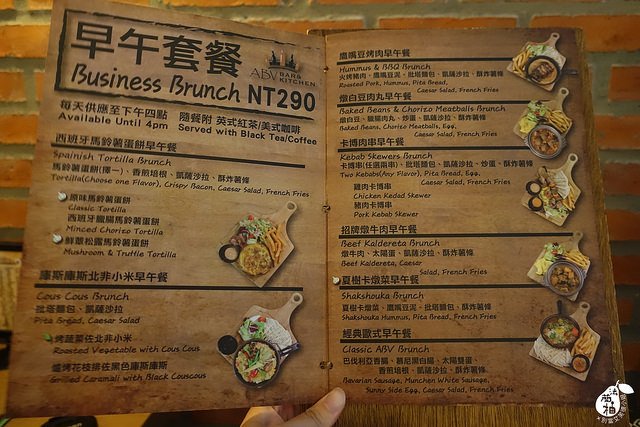 早午套餐
ABV BAR& KITCHEN
Business Brunch NT290
每天供應至下午四點 隨餐附 英式紅茶/美式咖啡
Available Until 4pm Served with Black Tea/Coffee
西班牙馬鈴薯蛋餅早午餐
Spainish Tortilla Brunch
馬鈴薯蛋餅(擇一)、香煎培根、凱薩沙拉、酥炸薯條
Tortilla(Choose one Flavor), Crispy Bacon, Caesar Salad, French Fries
原味馬鈴薯蛋餅
Classic Tortilla
西班牙臘腸馬鈴薯蛋餅
Minced Chorizo Tortilla
鮮菇松露馬鈴薯蛋餅
Mushroom & Truffle Tortilla
庫斯庫斯北非小米早午餐
Cous Cous Brunch
批塔麵包、凱薩沙拉
Pita Bread, Caesar Salad
烤蔬菜佐北非小米
Roasted Vegetable with Cous Cous
爐烤花枝排佐黑色庫斯庫斯
Grilled Caramali with Black Couscous
鷹嘴豆烤肉早午餐
Hummus & BBQ Brunch
火烤豬肉、鷹嘴豆泥、批塔麵包、凱薩沙拉、酥炸薯條
Roasted Pork, Hummus, Pita Bread,
Caesar Salad, French Fries
燉白豆肉丸早午餐
Baked Beans & Chorizo Meatballs Brunch
燉白豆、臘腸肉丸、炒蛋、凱薩沙拉、酥炸薯條
Baked Beans, Chorizo Meatballs, Egg,
Caesar Salad, French Fries
卡博肉串早午餐
Kebab Skewers Brunch
卡博肉串(任選兩串)、批塔麵包、凱薩沙拉、炒蛋、酥炸薯條
Two Kebabs(Any Flavor), Pita Bread, Egg,
Caesar Salad, French Fries
雞肉卡博串
Chicken Kedad Skewer
豬肉卡博串
Pork Kebab Skewer
招牌燉牛肉早午餐
Beef Kaldereta Brunch
燉牛肉、太陽蛋、凱薩沙拉、酥炸薯條
Beef Kaldereta, Caesar
Salad, French Fries
夏樹卡燉菜早午餐
Shakshouka Brunch
夏樹卡燉菜、鷹嘴豆泥、批塔麵包、凱薩沙拉、酥炸薯條
Shakshouka Hummus, Pita Bread, French Fries
經典歐式早午餐
Classic ABV Brunch
巴伐利亞香腸、慕尼黑白腸、太陽雙蛋、
香煎培根、凱薩沙拉、酥炸薯條
Bavarian Sausage, Munchen White Sausage,
Sunny Side Egg, Caesar Salad, French Fries